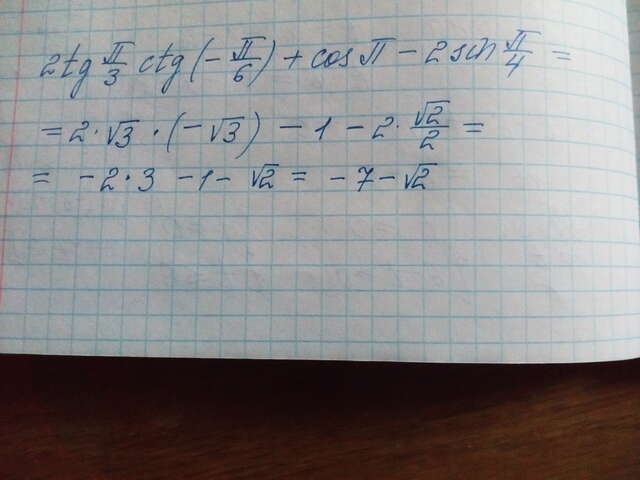 2tg π/3 ctg(-π/6) + cos π - 2 sin π/4 =
= 2·√3·(-√3) - 1 - 2·√2/2 =
= -2·3 -1- √2 = -7-√2